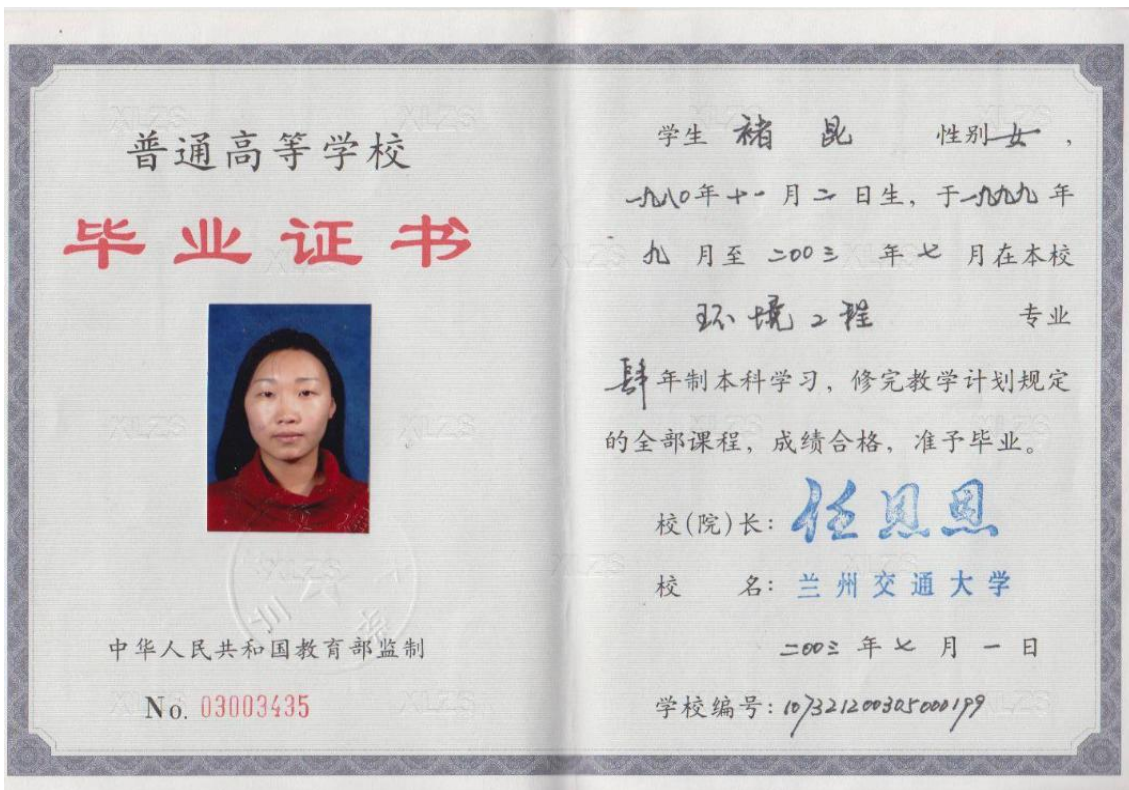 普通高等学校
毕业证书
中华人民共和国教育部监制
No. 03003435
学生 褚昆 性别 女，
一九八〇年十一月二日生，于一九九九年
九月至二〇〇三年七月在本校
环境工程 专业
肆年制本科学习，修完教学计划规定
的全部课程，成绩合格，准予毕业。
校(院)长：任恩恩
校 名：兰州交通大学
二〇〇三年七月一日
学校编号：107321200305000199
XLZS